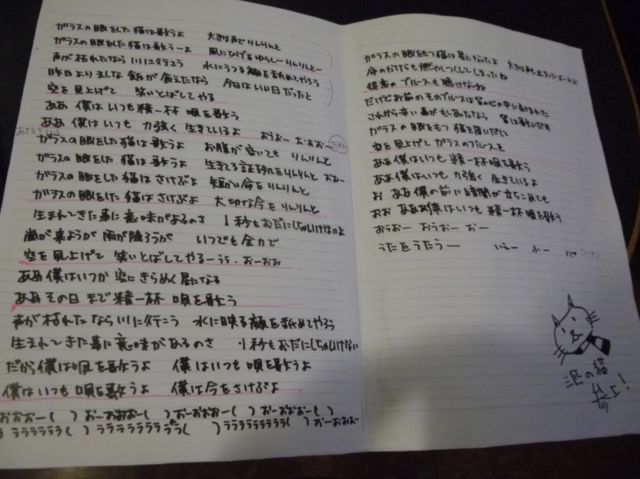 ガラスの眼をした猫は歌うよ 大きな声でりんりんと
ガラスの眼をした猫は歌うーよ 風にひげをゆらしーりんりんとー
声が枯れたなら川に行こう 水にうつる顔を舐めてやろう
昨日よりましな飯が食えたなら 今日はいい日だったと
空を見上げて 笑いとばしてやる
ああ 僕はいつも精一杯 唄を歌う
ああ 僕はいつも 力強く 生きているよ おうおー
ガラスの眼をした猫は歌うよ お腹が空いても りんりんと
ガラスの眼をした猫は歌うよ 生きてる証拠をりんりんと おおー
ガラスの眼をした猫はさけぶよ 短かい命をりんりんと
ガラスの眼をした猫はさけぶよ 大切な今をりんりんと
生まれてきた事に意味があるのさ 1秒もむだにしちゃいけないよ
嵐が来ようが 雨が降ろうが いつでも全力で
空を見上げて 笑いとばしてやるーうぅ.おーおお
ああ 僕はいつか 空にきらめく星になる
ああ その日まで精一杯 唄を歌う
声が枯れたなら川に行こう 水に映る顔を舐めてやろう
生まれてきた事に意味があるのさ 1秒もむだにしちゃいけない
だから僕は唄を歌うよ 僕はいつも唄を歌うよ
僕はいつも 唄を歌うよ 僕は今をさけぶよ
おおおー( ) おーおおおー( ) おーおおおー( ) おーおおおー( )
ララララララ( ) ララララララララ( ) ララララララララ( ) おーおおおー
ガラスの眼をもつ猫は星になったよ
命のかけらも燃やしつくしてしまったね
得意のブルースも聴けないね
だけどお前のそのブルースは
ガラスの眼をもつ猫を思いだし
空を見上げて ガラスのブルースを
ああ 僕はいつも 精一杯唄を歌う
ああ 僕はいつも 力強く 生きているよ
お ああ 僕の前に 暗闇が立ちこめても
おお ああ 僕はいつも 精一杯 唄を歌う
おうおー おうおー おー
うたをうたうー いぇー